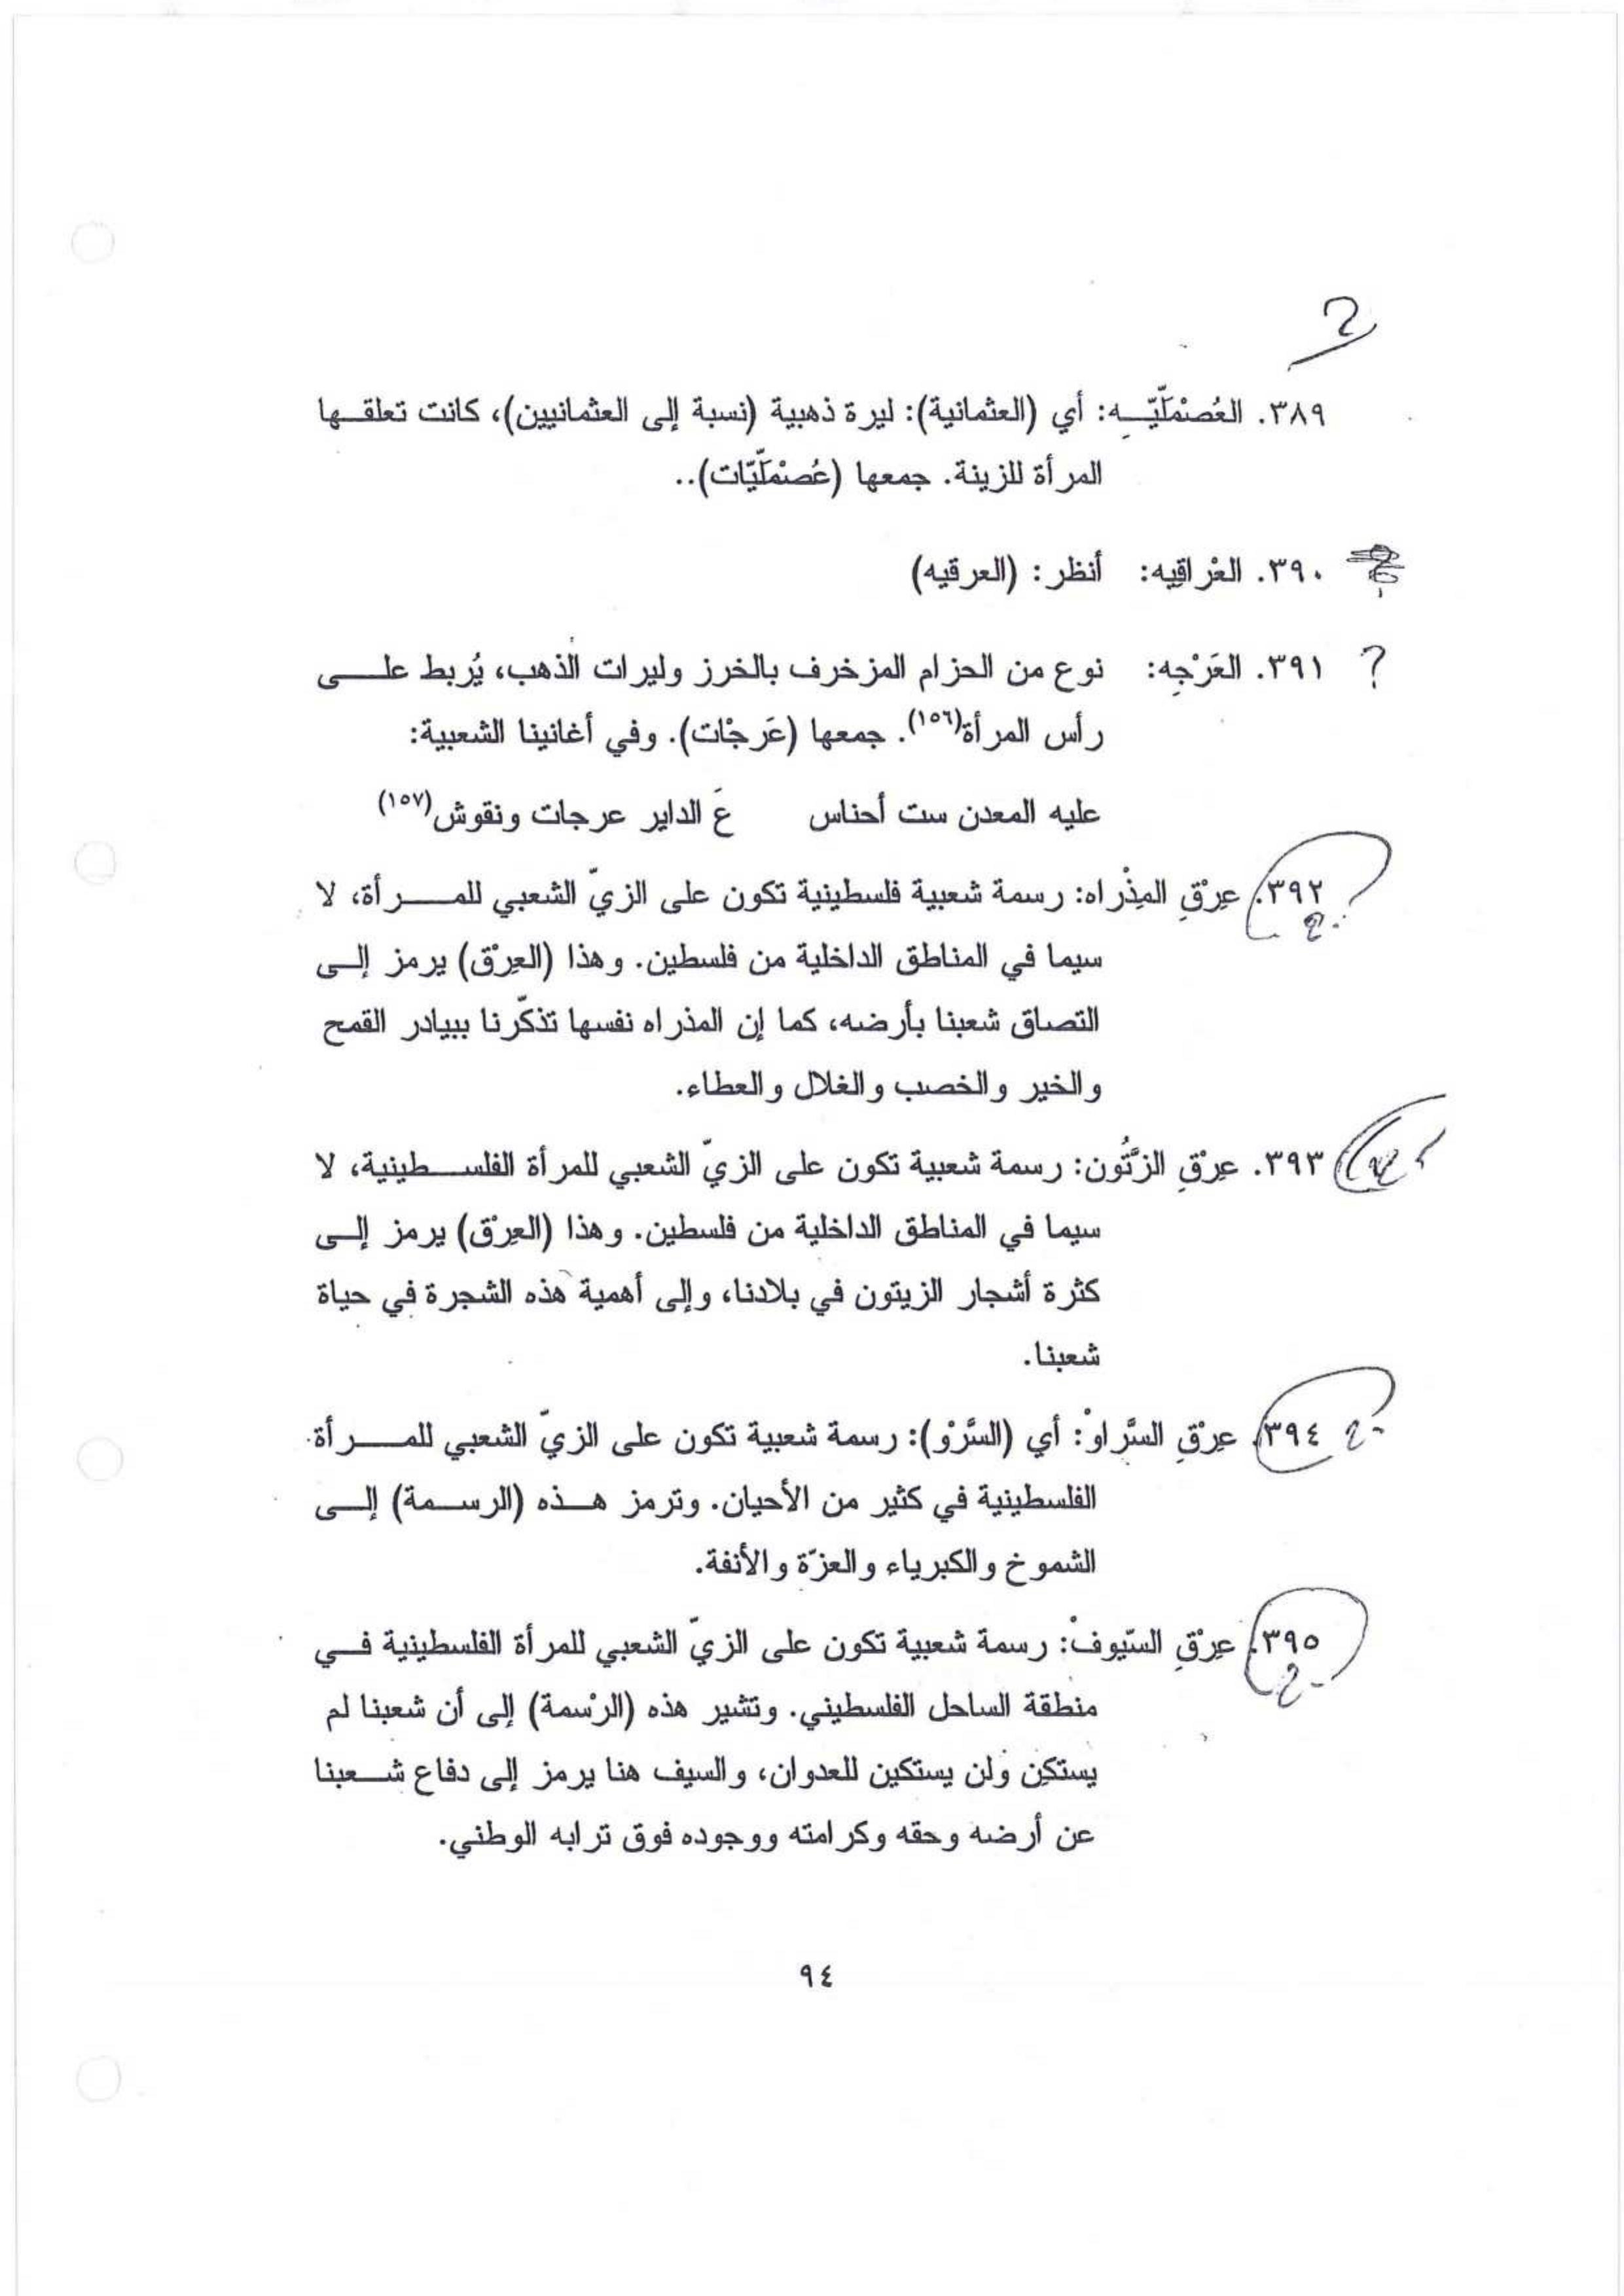 ٣٨٩. العُصْمَلّيّـه: أي (العثمانية): ليرة ذهبية (نسبة إلى العثمانيين)، كانت تعلقـها
المرأة للزينة. جمعها (عُصْمَلّيّات)..
٣٩٠. العْراقِيه: أنظر: (العرقيه)
? ٣٩١. العَرْجِه: نوع من الحزام المزخرف بالخرز وليرات الذهب، يُربط علـى
رأس المرأة(١٥٦). جمعها (عَرجْات). وفي أغانينا الشعبية:
عليه المعدن ست أحناس عَ الداير عرجات ونقوش(١٥٧)
٣٩٢. عِرْقِ المِذْراه: رسمة شعبية فلسطينية تكون على الزيّ الشعبي للمـرأة، لا
سيما في المناطق الداخلية من فلسطين. وهذا (العِرْق) يرمز إلـى
التصاق شعبنا بأرضه، كما إن المذراه نفسها تذكّرنا ببيادر القمح
والخير والخصب والغلال والعطاء.
٣٩٣. عِرْقِ الزَّتُون: رسمة شعبية تكون على الزيّ الشعبي للمرأة الفلسـطينية، لا
سيما في المناطق الداخلية من فلسطين. وهذا (العِرْق) يرمز إلـى
كثرة أشجار الزيتون في بلادنا، وإلى أهمية هذه الشجرة في حياة
شعبنا.
٣٩٤. عِرْقِ السَّراوْ: أي (السَّرْو): رسمة شعبية تكون على الزيّ الشعبي للمـرأة
الفلسطينية في كثير من الأحيان. وترمز هـذه (الرسـمة) إلـى
الشموخ والكبرياء والعزّة والأنفة.
٣٩٥. عِرْقِ السّيوفْ: رسمة شعبية تكون على الزيّ الشعبي للمرأة الفلسطينية فـي
منطقة الساحل الفلسطيني. وتشير هذه (الرْسمة) إلى أن شعبنا لم
يستكِن ولن يستكين للعدوان، والسيف هنا يرمز إلى دفاع شـعبنا
عن أرضه وحقه وكرامته ووجوده فوق ترابه الوطني.
٩٤